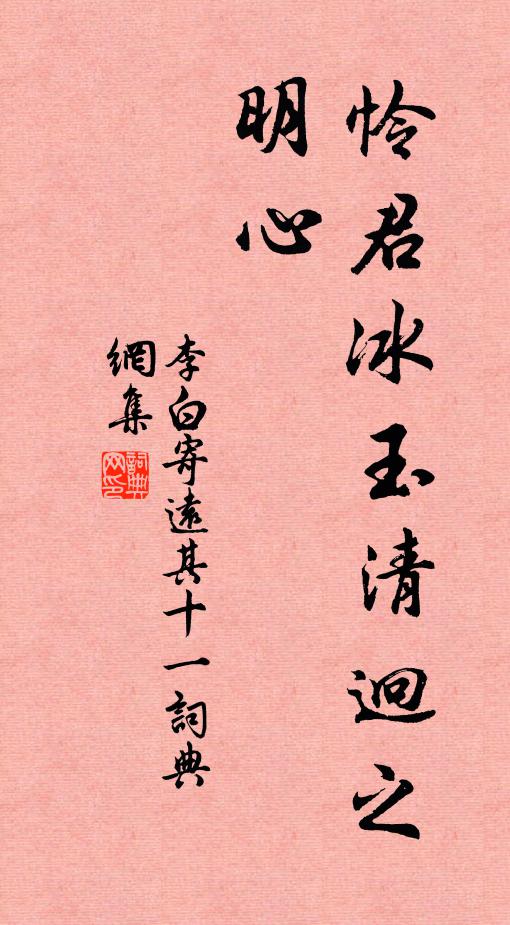 怜君冰玉清迥之
明心
李白寄遠其十一詞典
網集
詞典
网印